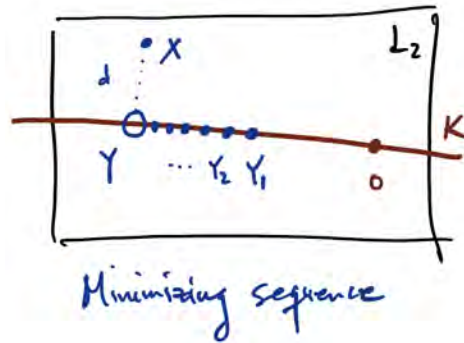 L₂
X
d
K
Y ... Y₂ Y₁
0
Minimizing sequence